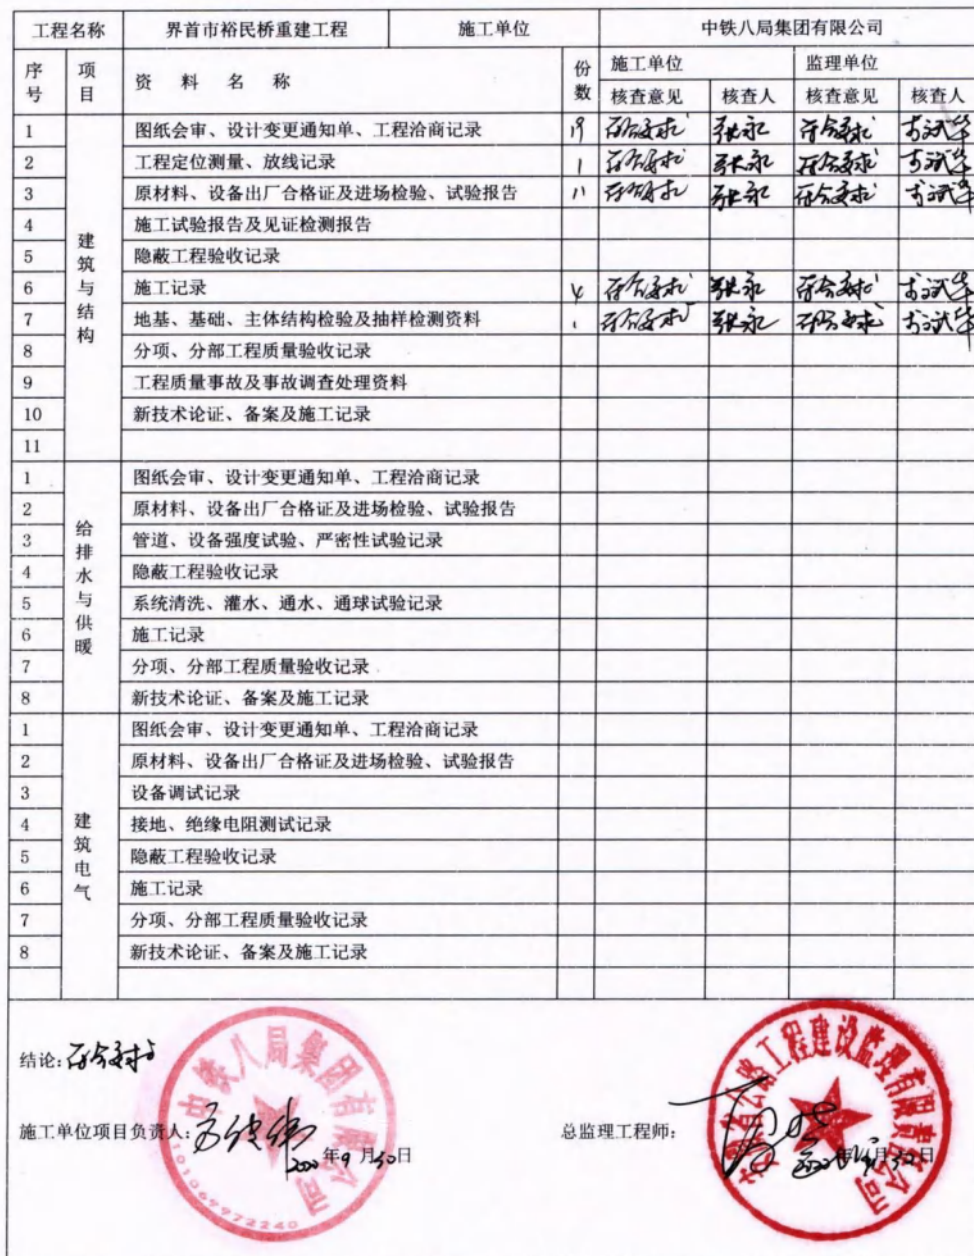 工程名称 界首市裕民桥重建工程 施工单位 中铁八局集团有限公司
序号 项目 资料名称 份数 施工单位 监理单位
核查意见 核查人 核查意见 核查人
建筑与结构
1 图纸会审、设计变更通知单、工程洽商记录 19 符合要求 张永 符合要求
2 工程定位测量、放线记录 1 符合要求 张永 符合要求
3 原材料、设备出厂合格证及进场检验、试验报告 11 符合要求 张永 符合要求
4 施工试验报告及见证检测报告
5 隐蔽工程验收记录
6 施工记录 4 符合要求 张永 符合要求
7 地基、基础、主体结构检验及抽样检测资料 1 符合要求 张永 符合要求
8 分项、分部工程质量验收记录
9 工程质量事故及事故调查处理资料
10 新技术论证、备案及施工记录
11
给排水与供暖
1 图纸会审、设计变更通知单、工程洽商记录
2 原材料、设备出厂合格证及进场检验、试验报告
3 管道、设备强度试验、严密性试验记录
4 隐蔽工程验收记录
5 系统清洗、灌水、通水、通球试验记录
6 施工记录
7 分项、分部工程质量验收记录
8 新技术论证、备案及施工记录
建筑电气
1 图纸会审、设计变更通知单、工程洽商记录
2 原材料、设备出厂合格证及进场检验、试验报告
3 设备调试记录
4 接地、绝缘电阻测试记录
5 隐蔽工程验收记录
6 施工记录
7 分项、分部工程质量验收记录
8 新技术论证、备案及施工记录
结论:符合要求
施工单位项目负责人: 总监理工程师:
年9月30日 年 月 日
中铁八局集团有限公司
公路工程建设监理有限责任公司